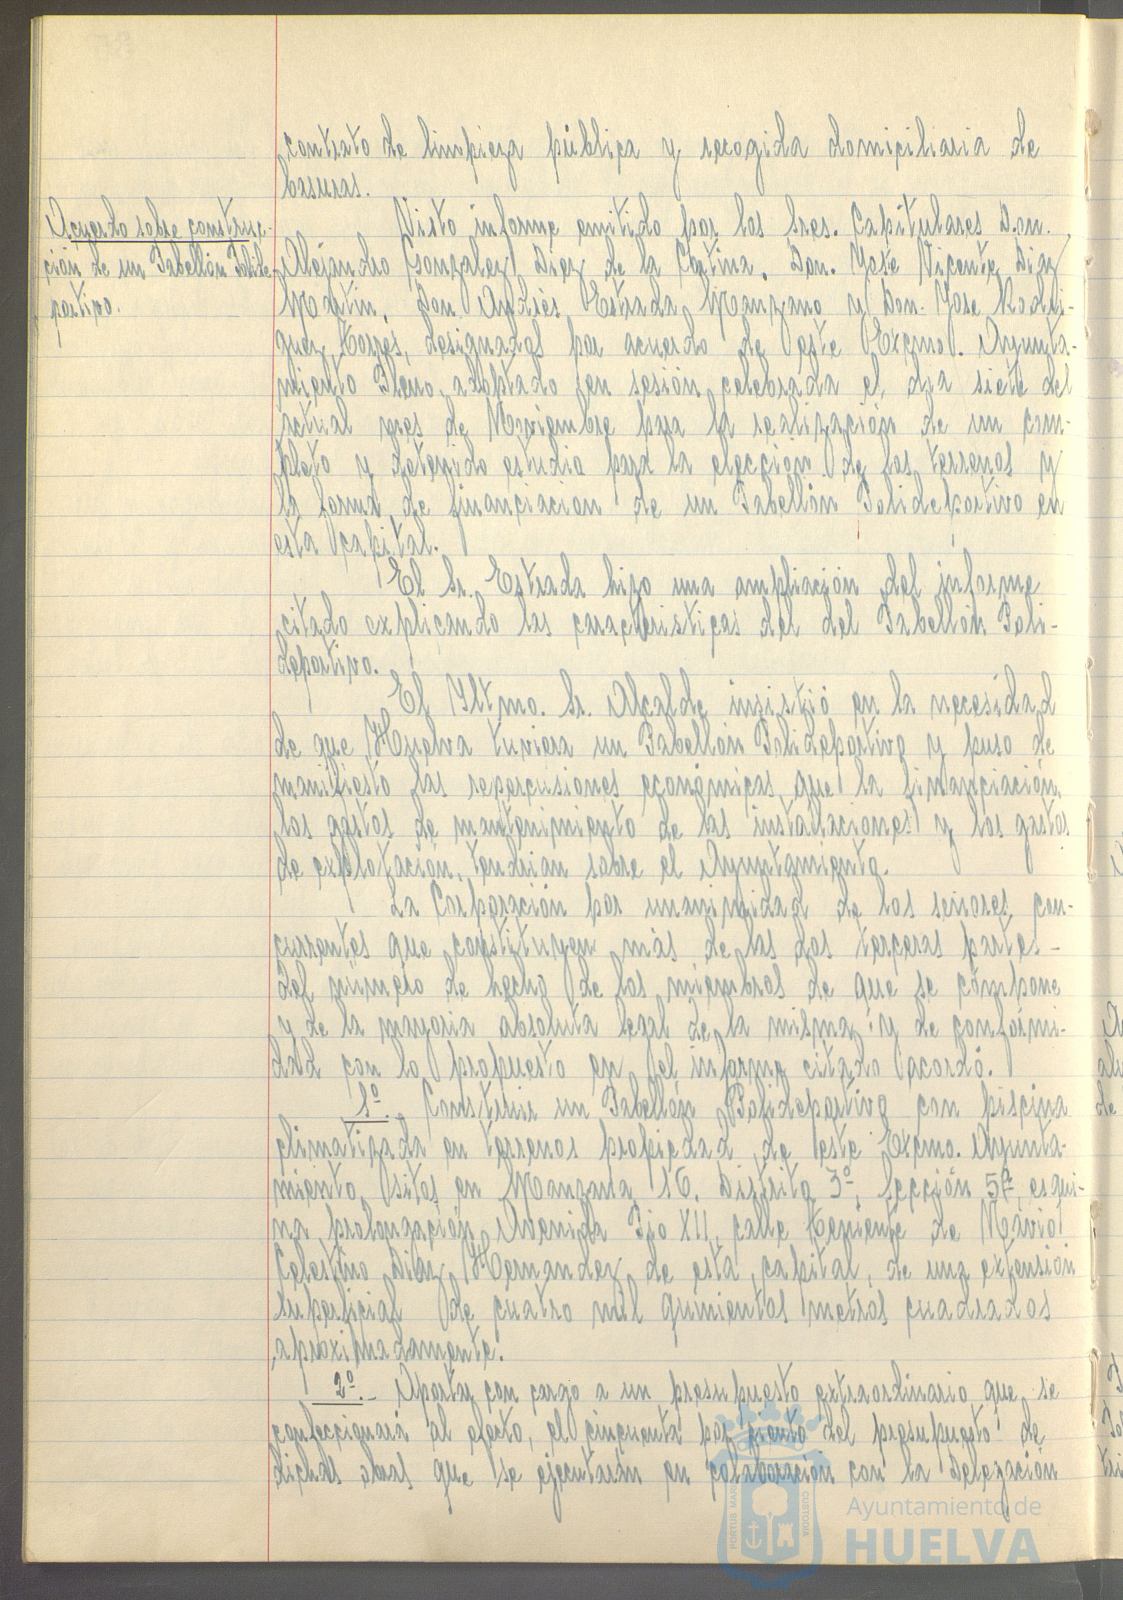 contrato de limpieza pública y recogida domiciliaria de
basuras.
Acuerdo sobre construc-
ción de un Pabellón Polide
portivo.
Visto informe emitido por los Sres. Capitulares Don.
Alejandro González Diez de la Cortina, Don. José Vicente Díaz
Martín, Don Andrés Estrada Manzano y Don. Jose Rodrí-
guez Torres, designados por acuerdo de este Excmo. Ayunta-
miento Pleno, adoptado en sesión celebrada el día siete del
actual mes de Noviembre para la realización de un com-
pleto y detenido estudio para la elección de los terrenos y
la forma de financiación de un Pabellón Polideportivo en
esta capital.
El Sr. Estrada hizo una ampliación del informe
citado explicando las características del del Pabellón Poli-
deportivo.
El Iltmo. Sr. Alcalde insistió en la necesidad
de que Huelva tuviera un Pabellón Polideportivo y puso de
manifiesto las repercusiones económicas que la financiación,
los gastos de mantenimiento de las instalaciones y los gastos
de explotación, tendrían sobre el Ayuntamiento.
La Corporación por unanimidad de los señores con-
currentes que constituyen más de las dos terceras partes-
del número de hecho de los miembros de que se compone
y de la mayoría absoluta legal de la misma y de conformi-
dad con lo propuesto en el informe citado acordó.
1º. Construir un Pabellón Polideportivo con piscina
climatizada en terrenos propiedad de este Excmo. Ayunta-
miento, sitos en Manzana 16, Distrito 3º, Sección 5ª, esqui-
na prolongación Avenida Pio XII, calle Teniente de Navío
Celestino Díaz Hernández, de esta capital, de una extensión
superficial de cuatro mil quinientos metros cuadrados
aproximadamente.
2º.- Aportar con cargo a un presupuesto extraordinario que se
confeccionará al efecto, el cincuenta por ciento del presupuesto de
dichas obras que se ejecutarán en colaboración con la Delegación
PORTUS MARIS
CUSTODIA
Ayuntamiento de
HUELVA